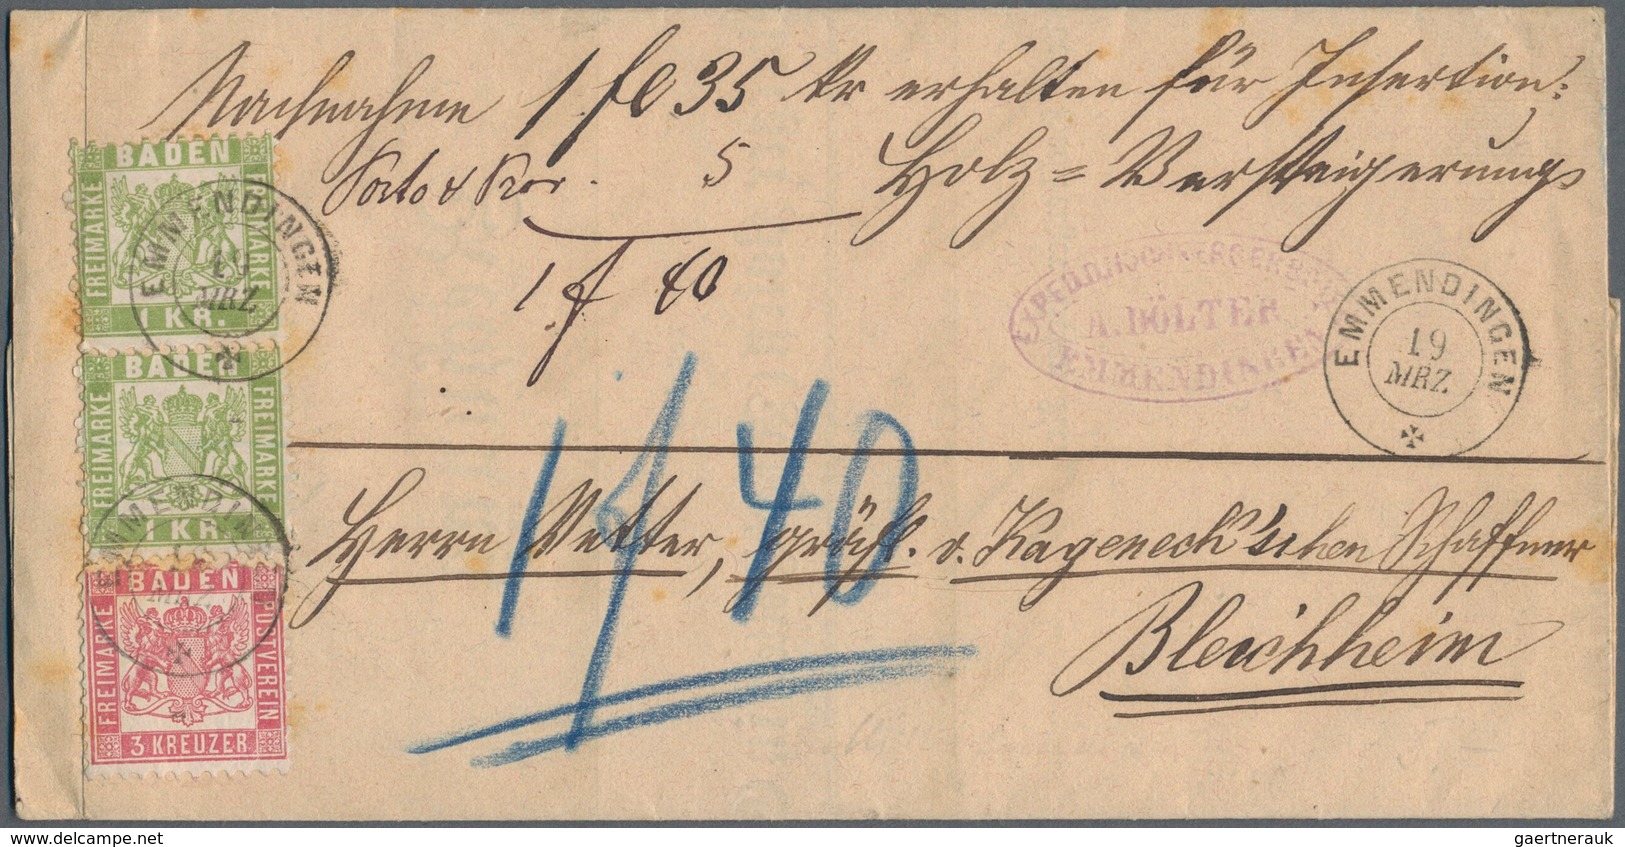 Nachnahme 1 fl 35 kr erhalten für Insertion:
Porto & 5 Holz = Versteigerungs
1 f 40
BADEN
FREIMARKE FREIMARKE
1 KR.
EMMENDINGEN
19
MRZ
A. DÖLTER
EMMENDINGEN
EMMENDINGEN
19
MRZ.
BADEN
FREIMARKE FREIMARKE
1 KR.
1 f 40
Herrn Vetter, gräfl. v. Kageneck'schen Schaffner
Bleichheim
EMMENDIN
BADEN
FREIMARKE POSTVEREIN
3 KREUZER
delcampe.net
gaertnerauk